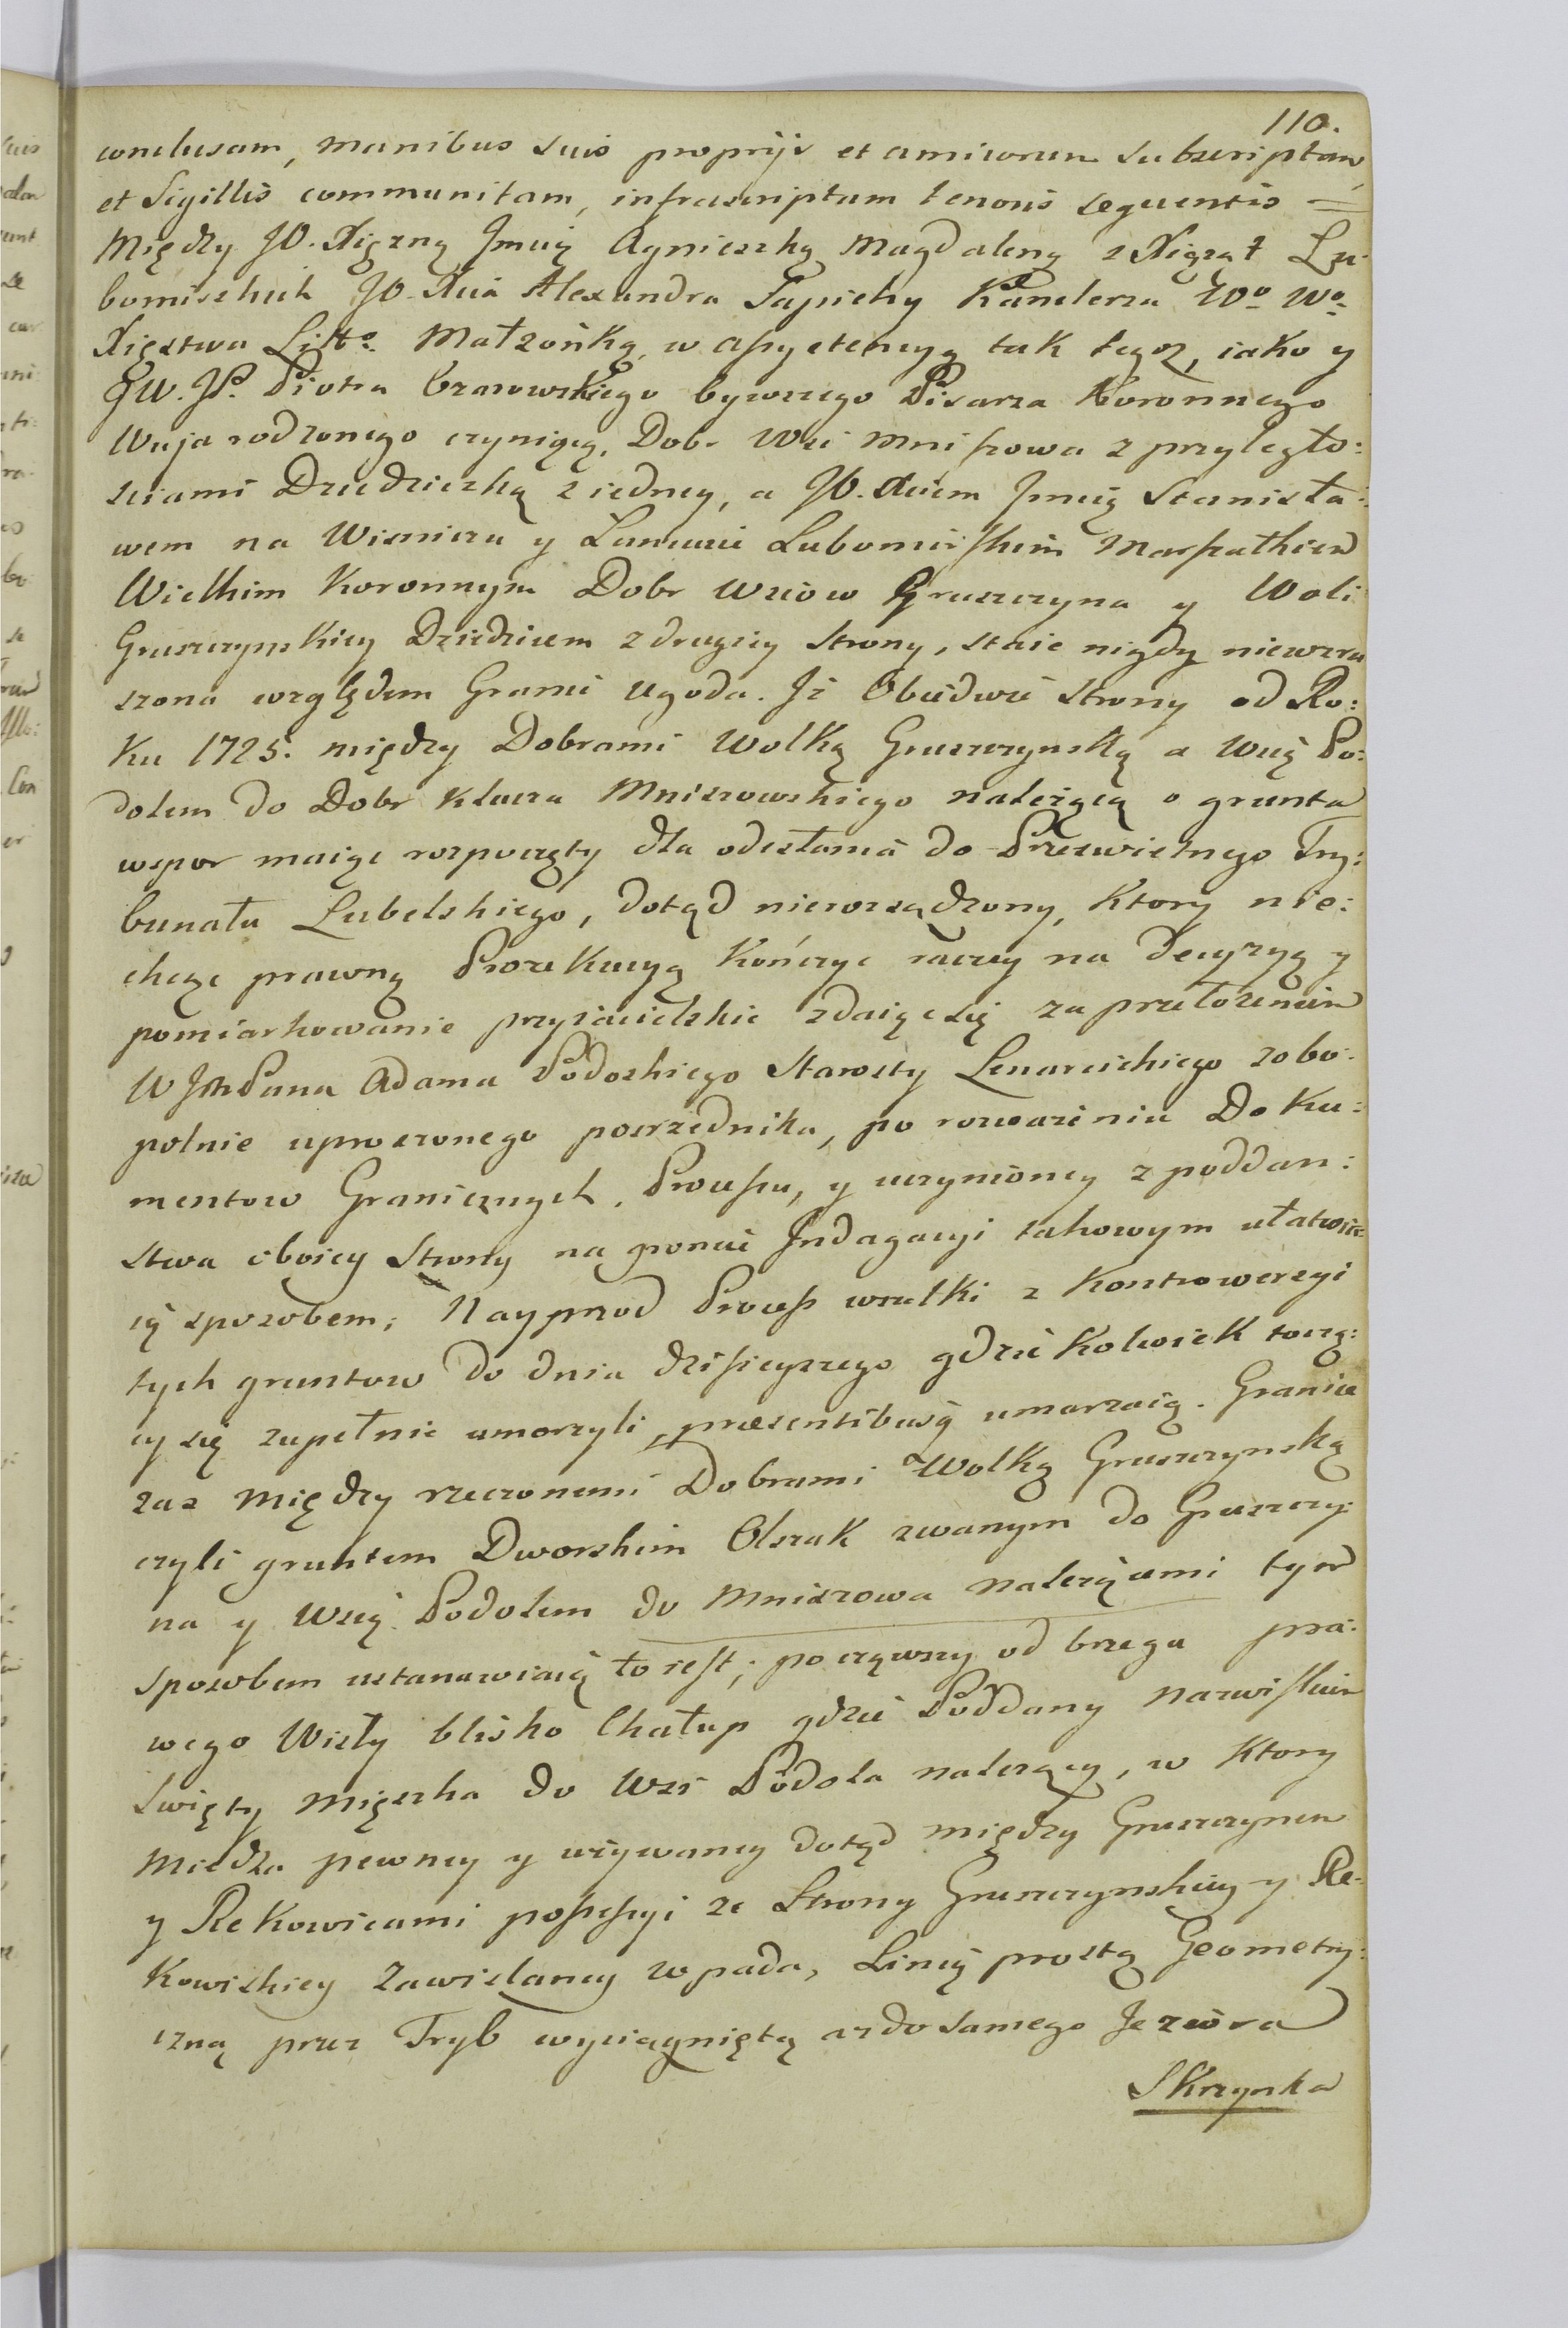 110.
conclusam, manibus suis proprijs et amicorum subscriptam,
et Sigillis communitam, infrascriptum tenoris sequentis =
Między JO. Xiężną Jmcią Agnieszką Magdaleną z Xiążąt Lu:
bomirskich JO. Xcia Alexandra Sapiehy Kanclerza Wo Wo
Xięstwa Litto. Małżonką, w assystencyą tak tegoż, iako y
JW. JP. Piotra Ożarowskiego bywszego Pisarza Koronnego
Wuja rodzonego czyniącą, Dobr Wsi Mniszowa z przyległo:
sciami Dziedziczką z iedney, a JO. Xciem Jmcią Stanisła:
wem na Wisniczu y Łancucie Lubomirskim Marszałkiem
Wielkim Koronnym Dobr Wsiow Gruszczyna y Woli
Gruszczynskiey Dziedzicem z drugiey strony, staie nigdy niewzru
szona względem Granic Ugoda. Iż Obiedwie Strony od Ro:
ku 1725. między Dobrami Wolką Gruszczynską a Wsią Po:
dolem do Dobr Klucza Mniszowskiego należącą o grunta
wspor maiąc rozpoczęty dla odesłania do Prześwietnego Try:
bunału Lubelskiego, dotąd nierozsądzony, ktory nie:
chcąc prawną Prozekucyą kończyc raczey na Decyzyą y
pomiarkowanie przyiacielskie zdaiąc się za przełożeniem
W Jmć Pana Adama Podoskiego Starosty zobo:
polnie uproszonego posrzednika, po rozważeniu Doku:
mentow Granicznych, Processu, y uczynioney z poddan:
stwa oboiey Strony na groncie Indagacyi takowym ułatwia:
ią sposobem; Nayprzod Process wszelki z Kontrowersyi
tych gruntow do dnia dzisieyszego gdzie kolwiek toczą:
cy się zupełnie umorzyli, præsentibusq umarzaią. Granice
zas Między rzeczonemi Dobrami Wolką Gruszczynską
czyli gruntem Dworskim Olszak zwanym do Gruszczy:
na y Wsią Podolem do Mniszowa należącemi tym
sposobem ustanawiaią to iest; począwszy od brzega pra:
wego Wisły blisko Chałup gdzie Poddany Nazwiskiem
Swięty Mięszka do Wsi Podola należący, w ktory
Miedza pewney y używaney dotąd między Gruszczynem
y Rekowicami possessyi ze Strony Gruszczynskiey y Re:
kowiskiey Zawislaney wpada, Linią prostą Geometry:
czną przez Tryb wyciągniętą aż do samego Jeziora
Skrzynka